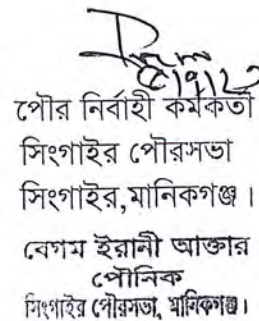 পৌর নির্বাহী কর্মকর্তা
সিংগাইর পৌরসভা
সিংগাইর,মানিকগঞ্জ।
বেগম ইরানী আক্তার
পৌনিক
সিংগাইর পৌরসভা, মানিকগঞ্জ।